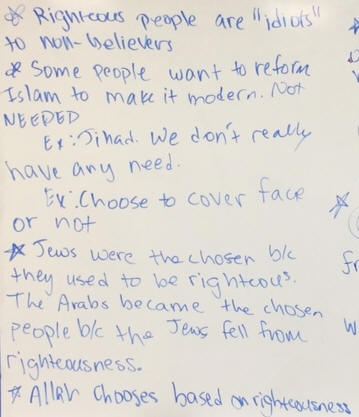 * Righteous people are "idiots"
to non-believers
* Some people want to reform
Islam to make it modern. Not
NEEDED
Ex: Jihad. We don't really
have any need.
Ex: Choose to cover face
or not
* Jews were the chosen b/c
they used to be righteous.
The Arabs became the chosen
people b/c the Jews fell from
righteousness.
* Allah chooses based on righteousness
fr
w